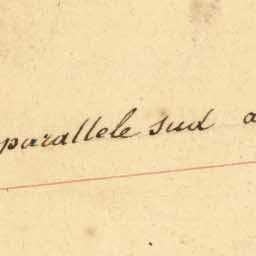 parallele sud a